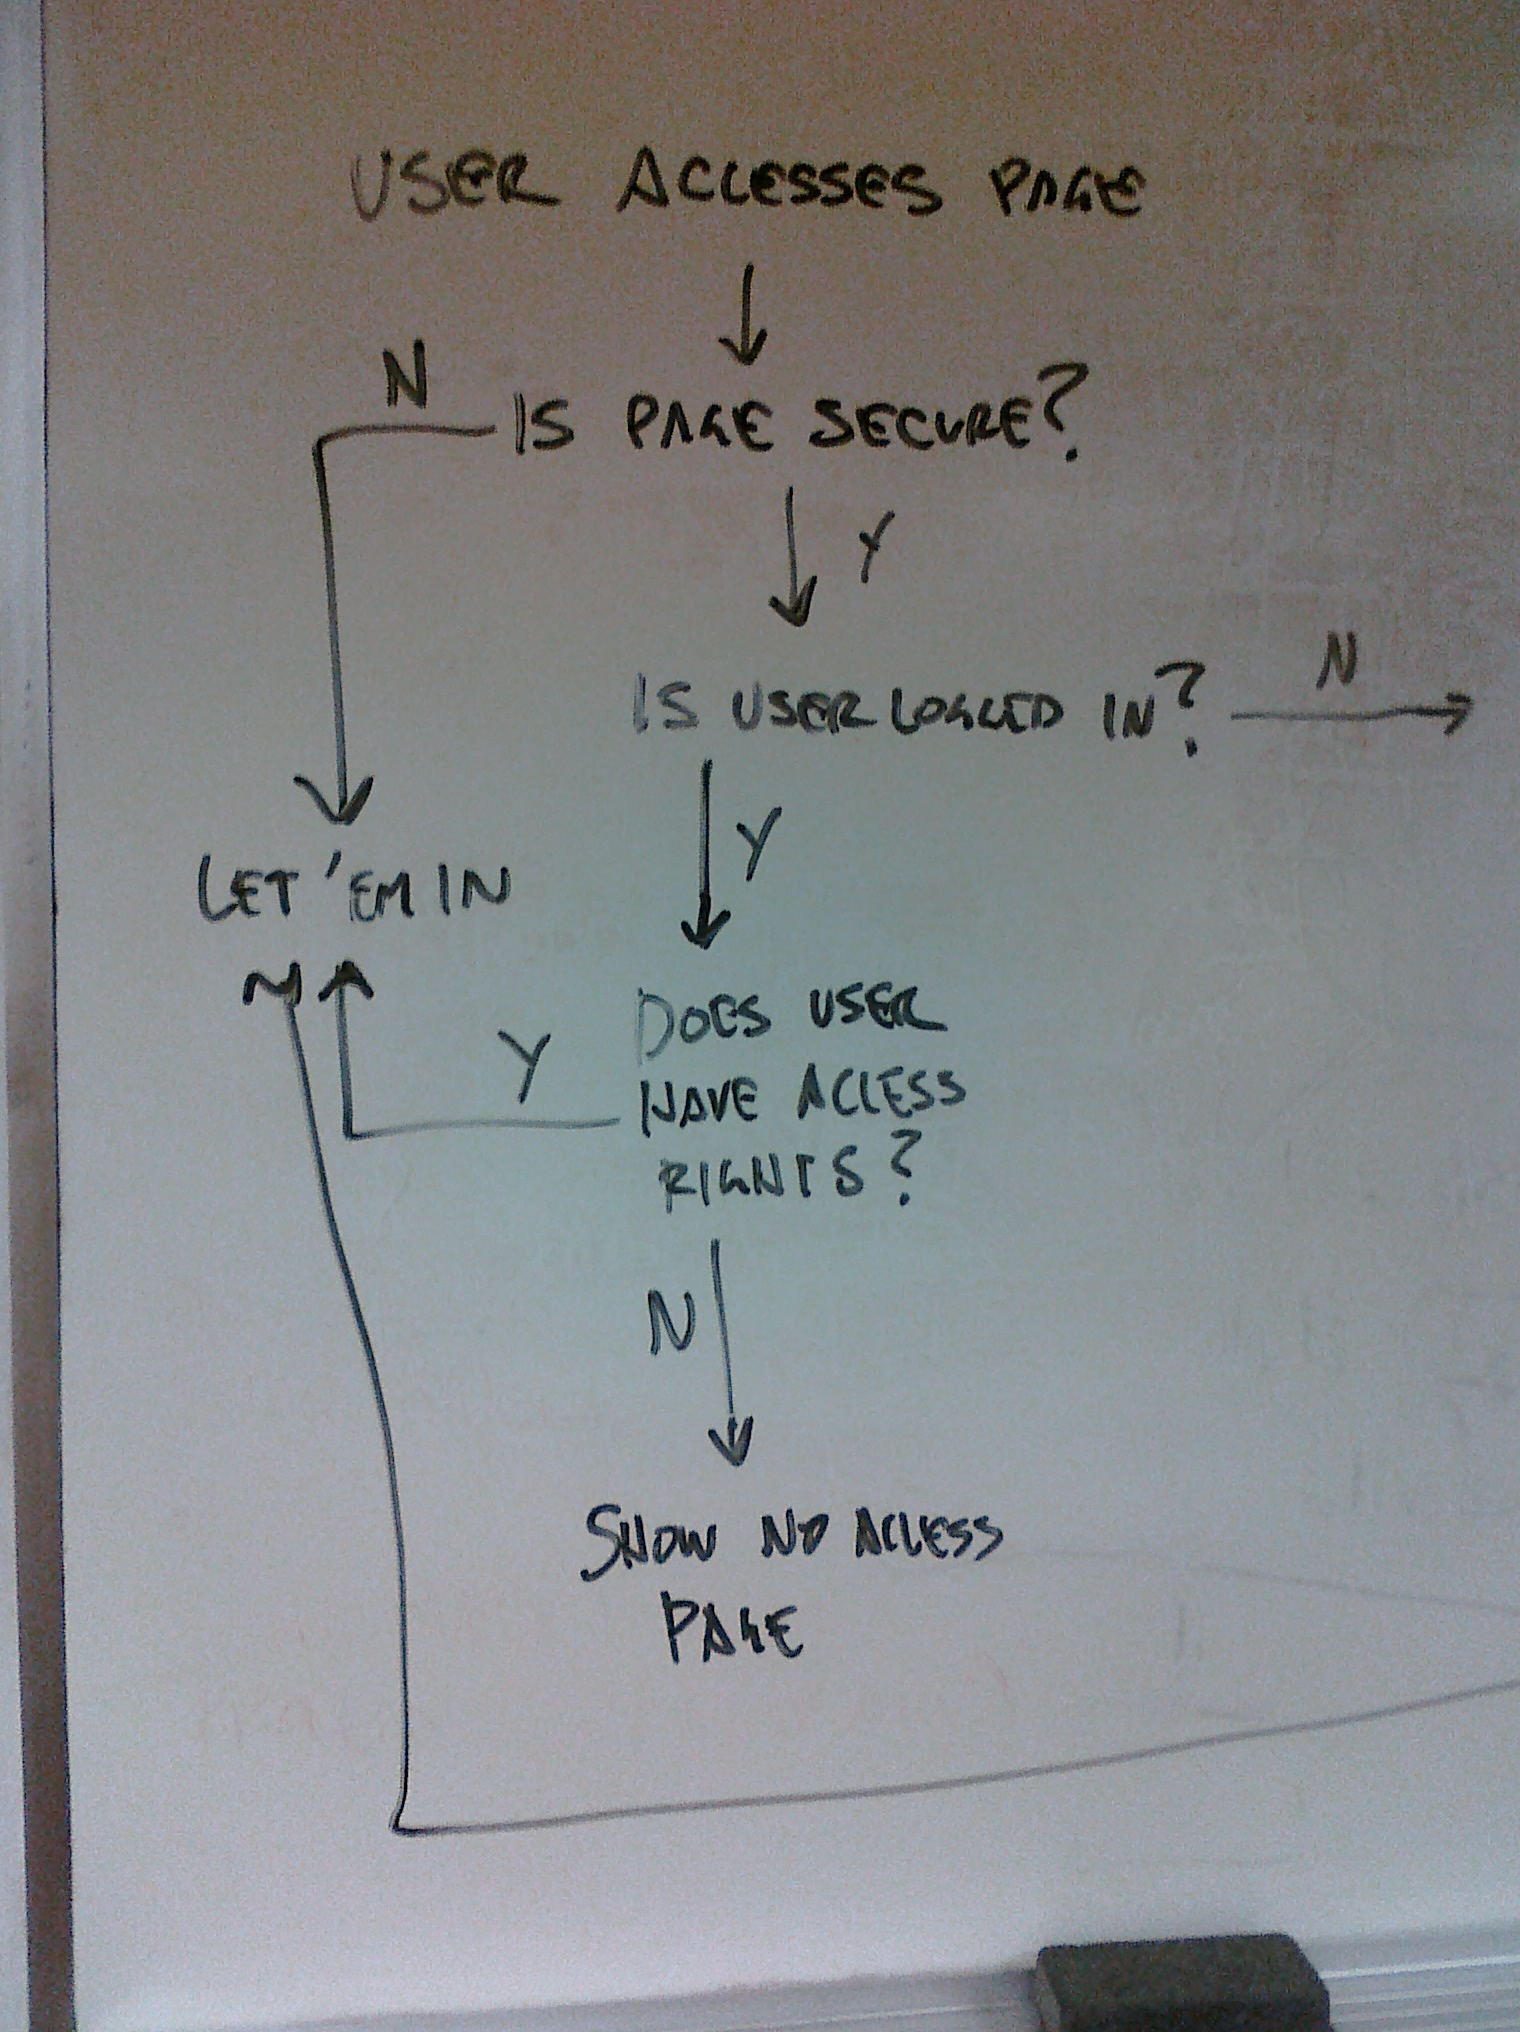 USER ACCESSES PAGE
N
IS PAGE SECURE?
Y
IS USER LOGGED IN?
N
Y
LET 'EM IN
DOES USER
Y
HAVE ACCESS
RIGHTS?
N
SHOW NO ACCESS
PAGE